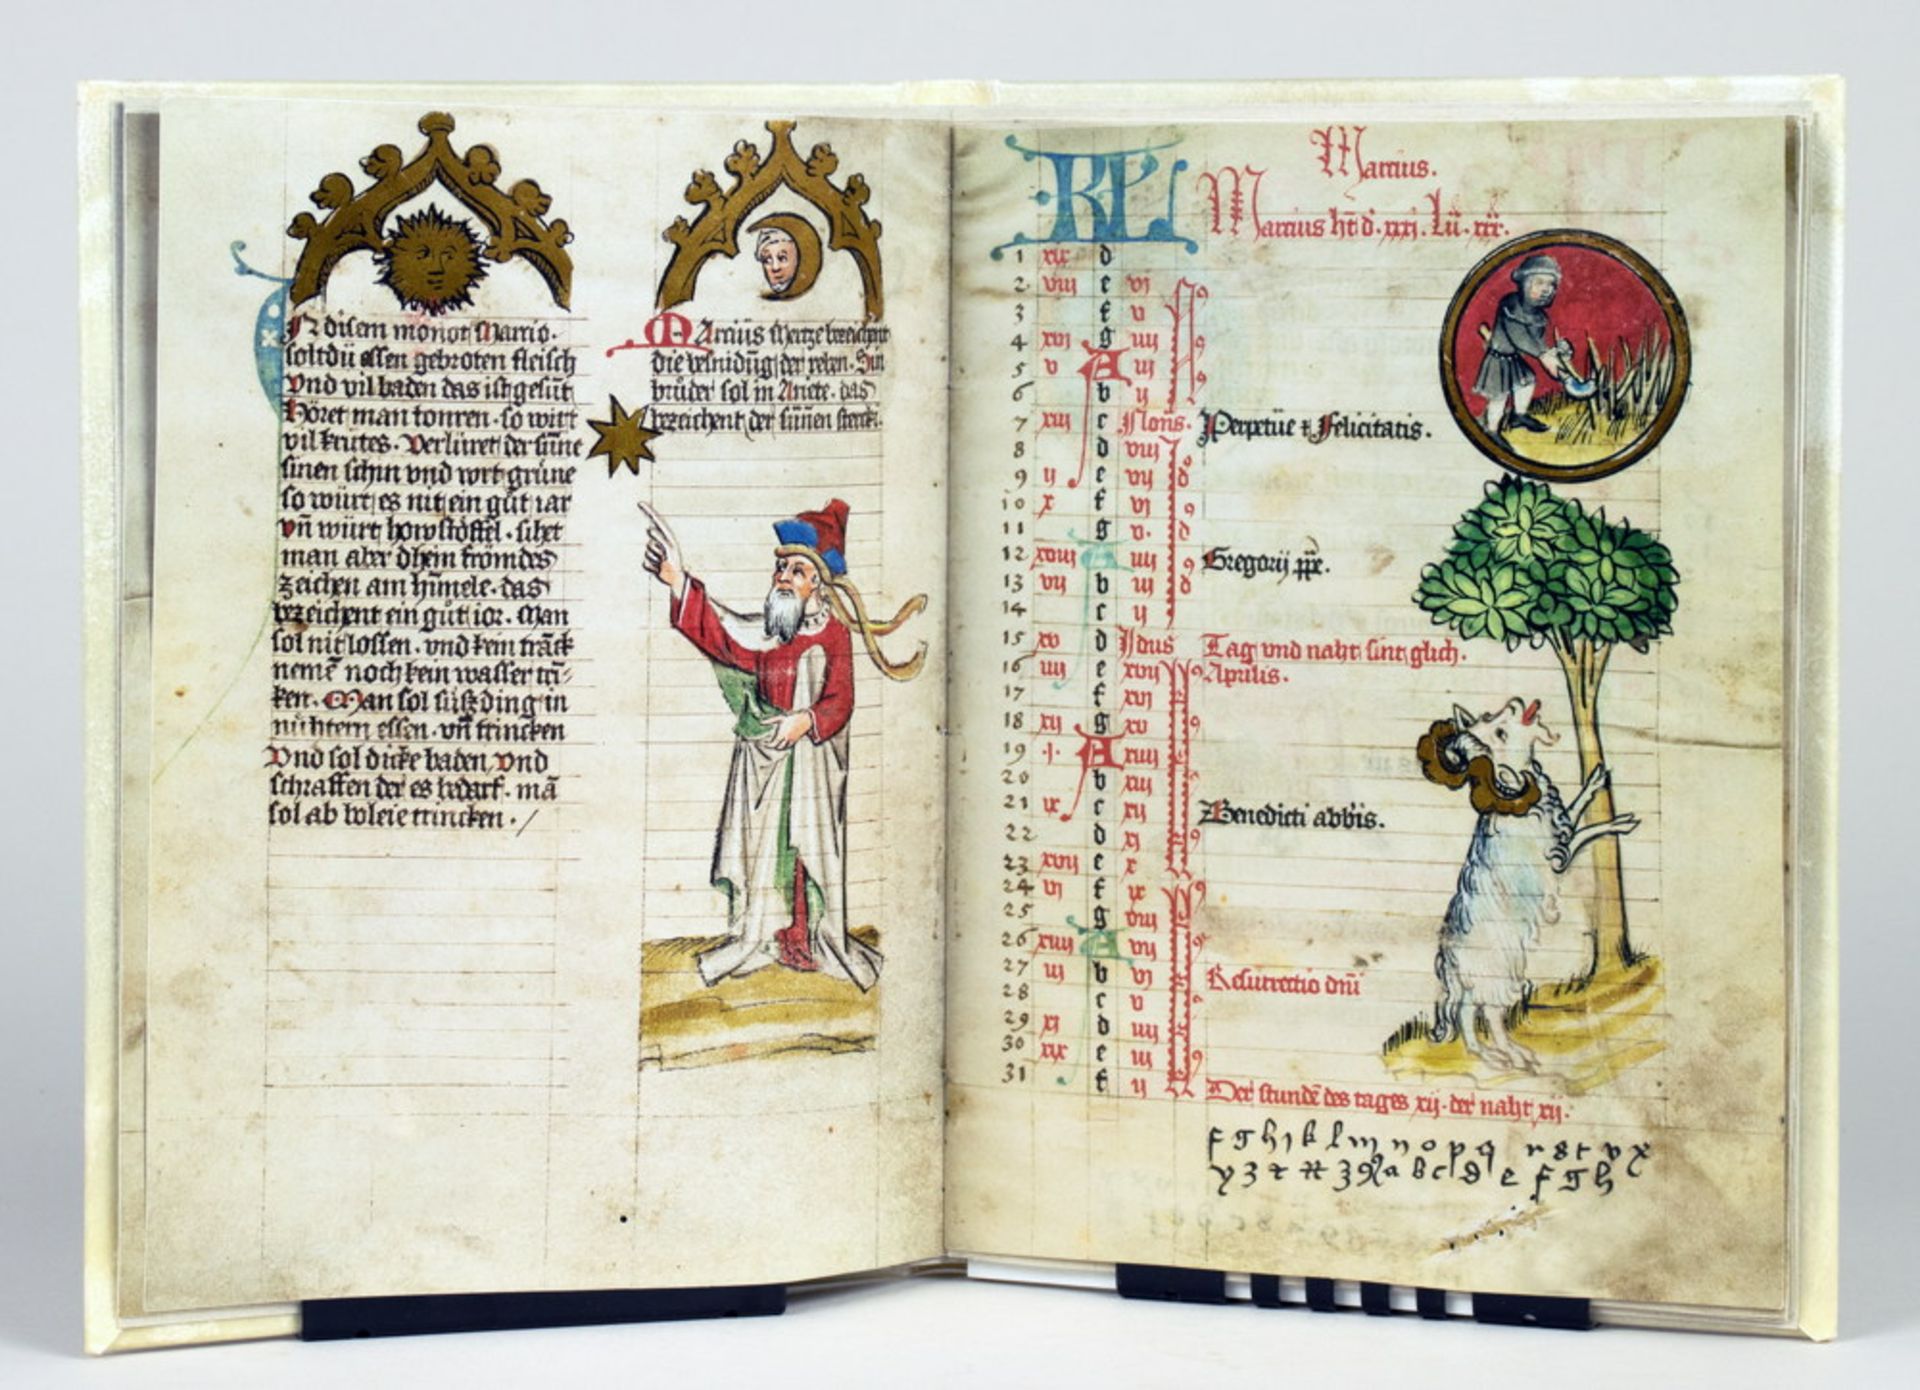 In disem monot Marcio.
soltdu essen gebroten fleisch
Vnd vil baden das ist gesūt
Höret man tonren. so wirt
vil krutes. Verlüret der sūne
sinen schin vnd wrt grüne
so würt es nit ein gůt iar
vn̄ würt howstöffel. sihet
man aber dhein frömdes
zeichen am hūmele. das
bezeichent ein gůt ior. Man
sol nit lossen. vnd kein tränck
nemē noch kein wasser tri-
ken. Man sol süsz ding in
nühtern essen. vn̄ trincken
Vnd sol dicke baden, vnd
schraffen der es bedarf. mā
sol ab boleie trincken. /
Marcius Mertze bezeichent
die besnidūg der reben. Sin
brůder sol in Ariete. das
bezeichent der sūnen
KL Marcius.
Marcius ht̄ d. xxxi. lū. xxx.
1 xix d
2 viii e vi
3 f v
4 xvi g iiii
5 v A iii
6 b ii
7 xiii c Nonis. Perpetue & Felicitatis.
8 d viii
9 ii e vii
10 x f vi
11 g v.
12 xviii A iiii Gregorij ppe.
13 vii b iii
14 c ii
15 xv d Idus Tag vnd naht sint glich.
16 iiii e xvii Aprilis.
17 f xvi
18 xii g xv
19 .i. A xiiii
20 b xiii
21 ix c xii Benedicti abbis.
22 d xi
23 xvii e x
24 vi f ix
25 g viii
26 xiiii A vii
27 iii b vi Resurrectio dn̄i
28 c v
29 xi d iiii
30 xix e iii
31 f ii Der stundē des tages xij. der naht xij.
f g h i k l m n o p q r s t v x
y z a b c d e f g h